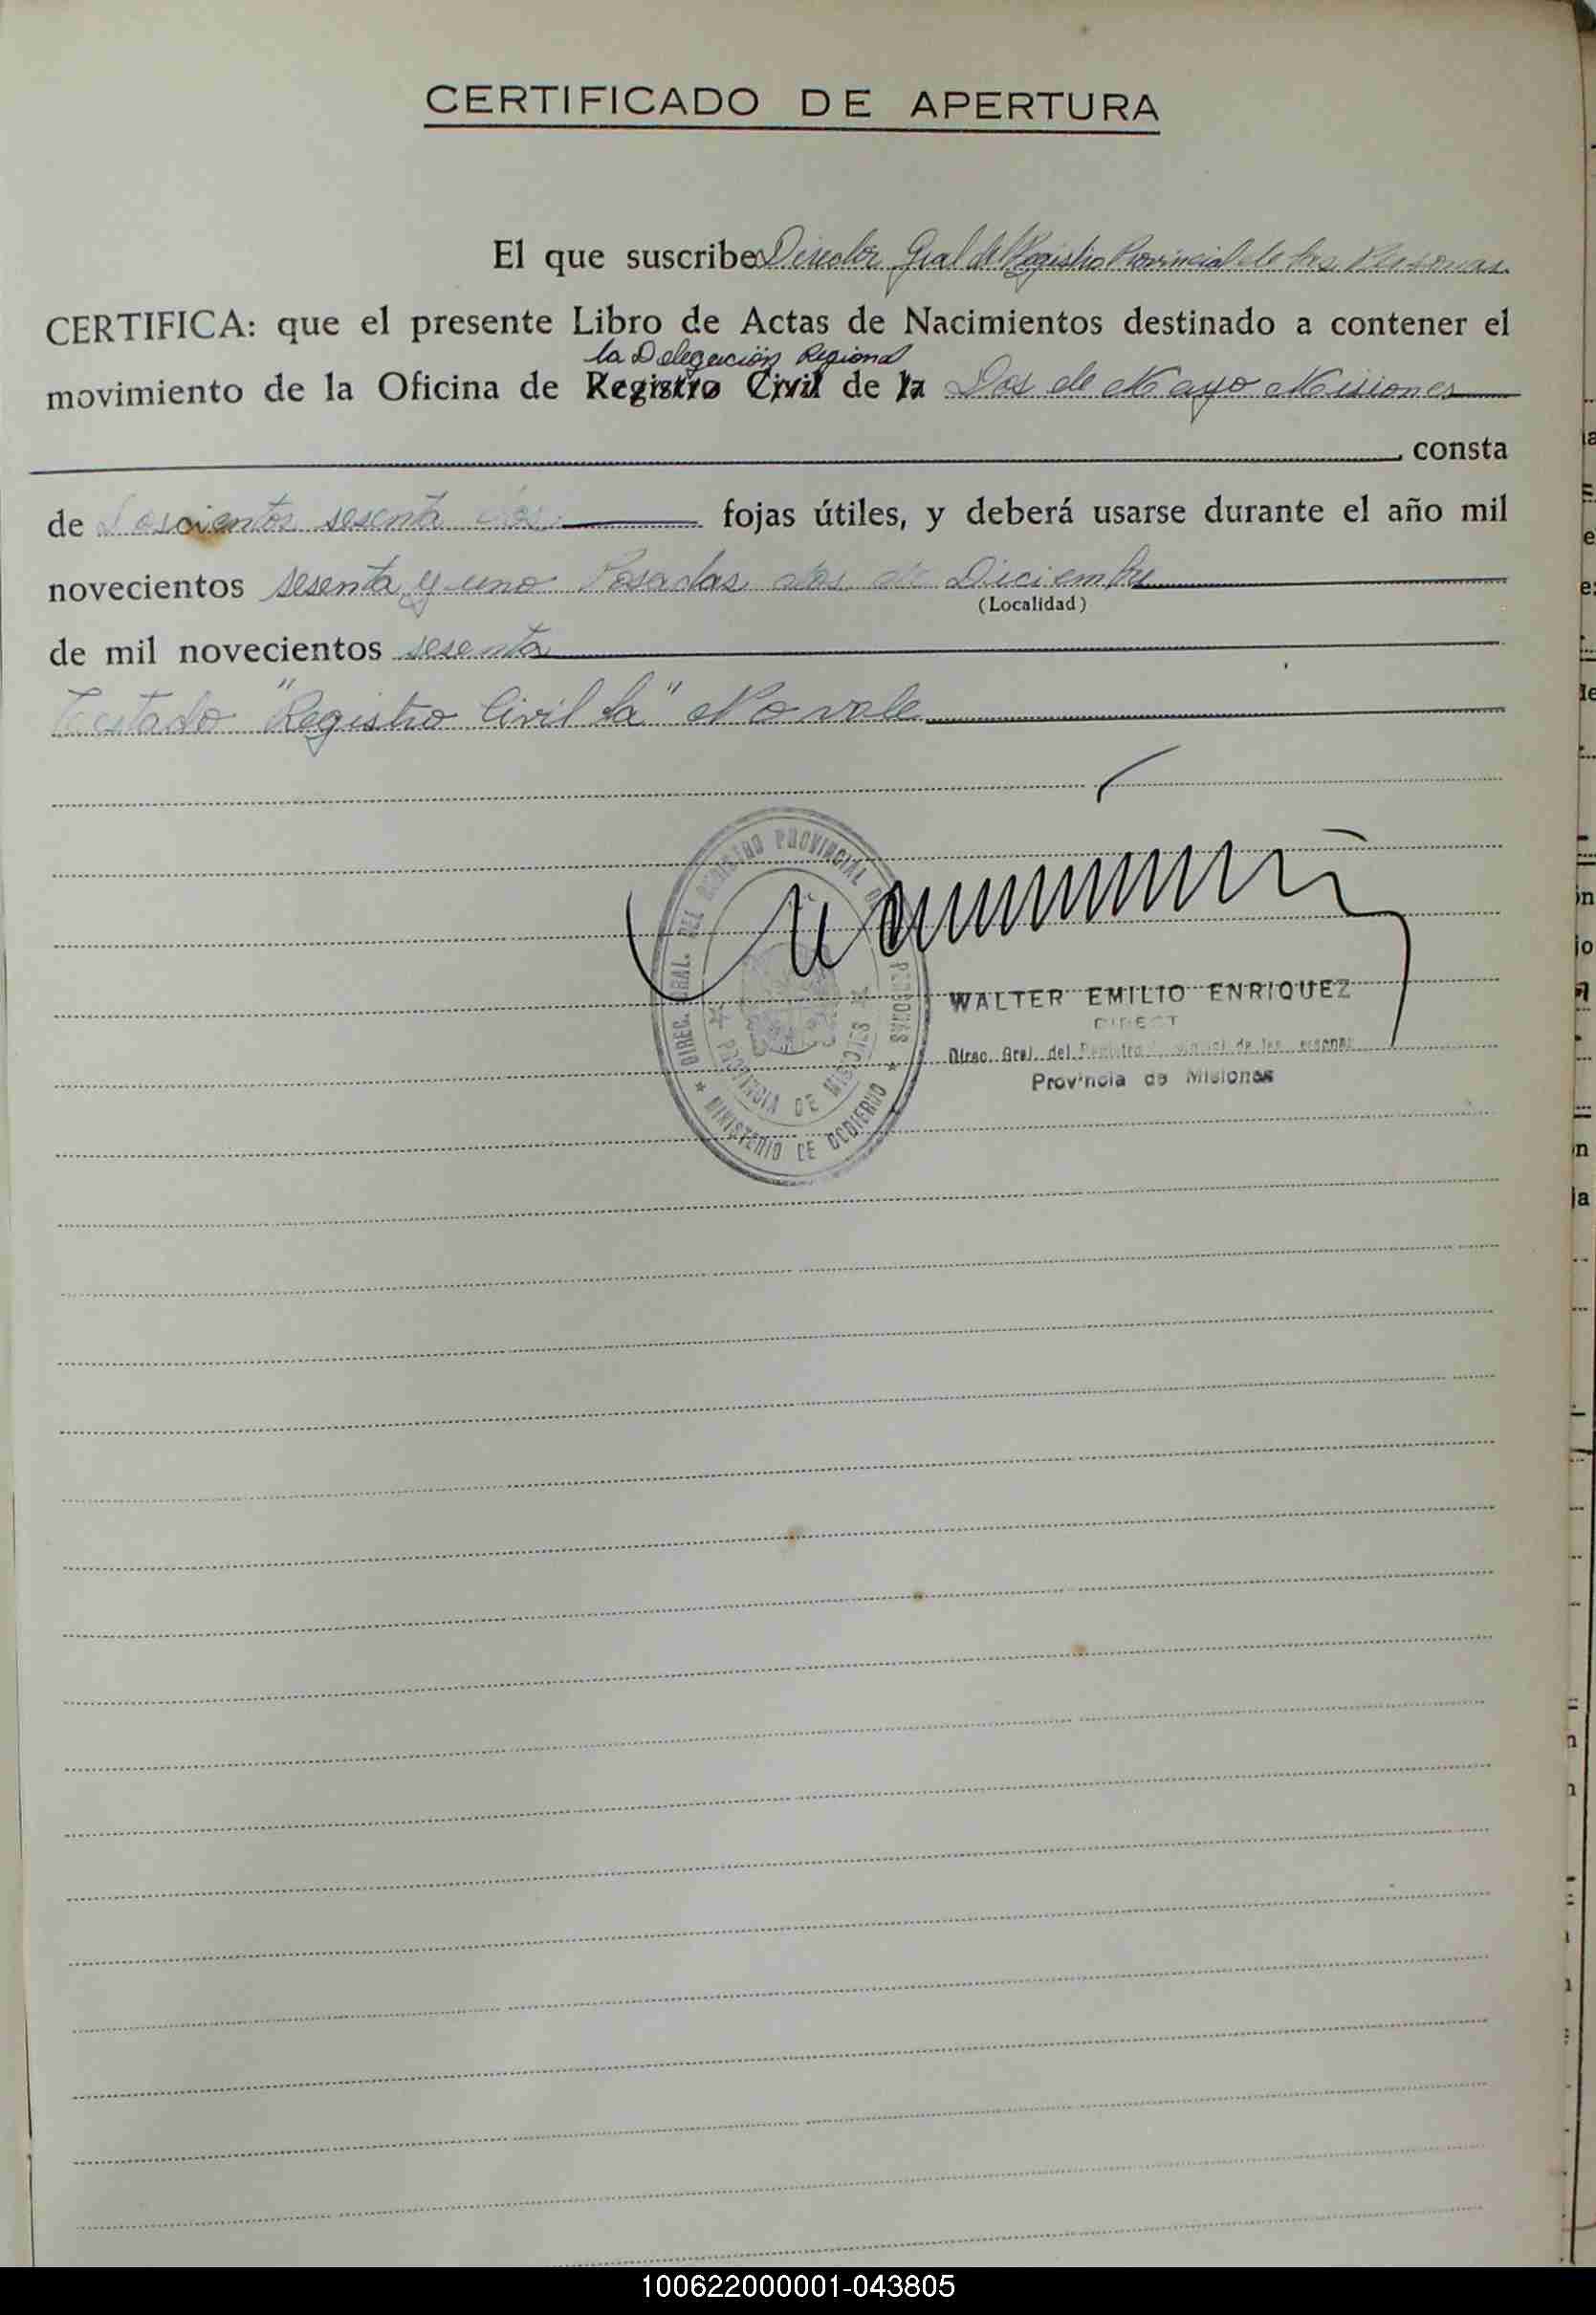 CERTIFICADO DE APERTURA
El que suscribe Director Gral del Registro Provincial de las Personas
CERTIFICA: que el presente Libro de Actas de Nacimientos destinado a contener el
la Delegación Regional
movimiento de la Oficina de Registro Civil de la Dos de Mayo Misiones
, consta
de Doscientos sesenta dos fojas útiles, y deberá usarse durante el año mil
novecientos sesenta y uno Posadas dos de Diciembre
(Localidad)
de mil novecientos sesenta
Testado "Registro Civil la" No vale
DIREC. GRAL. DEL REGISTRO PROVINCIAL DE PERSONAS
PROVINCIA DE MISIONES
MINISTERIO DE GOBIERNO
WALTER EMILIO ENRIQUEZ
DIRECT
Direc. Gral. del Registro de las
Provincia de Misiones
100622000001-043805